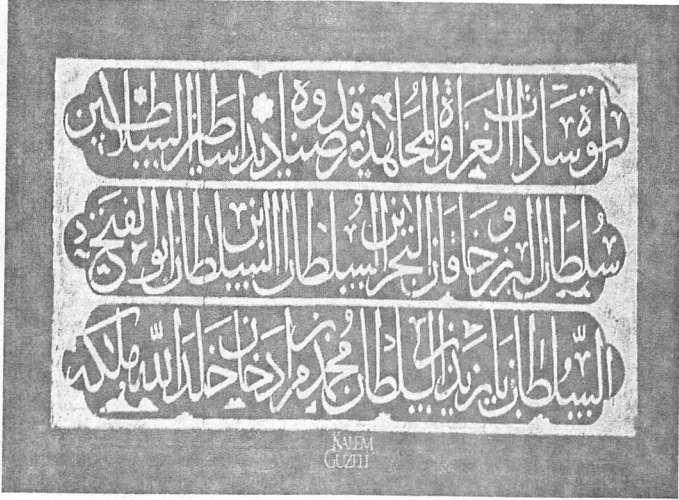 اسوة سادات الغزاة والمجاهدين قدوة صناديد اساطين السلاطين
سلطان البرين وخاقان البحرين السلطان ابن السلطان ابو الفتح
السلطان بايزيد بن السلطان محمد بن مراد خان خلد الله ملكه
KALEM
GUZELI